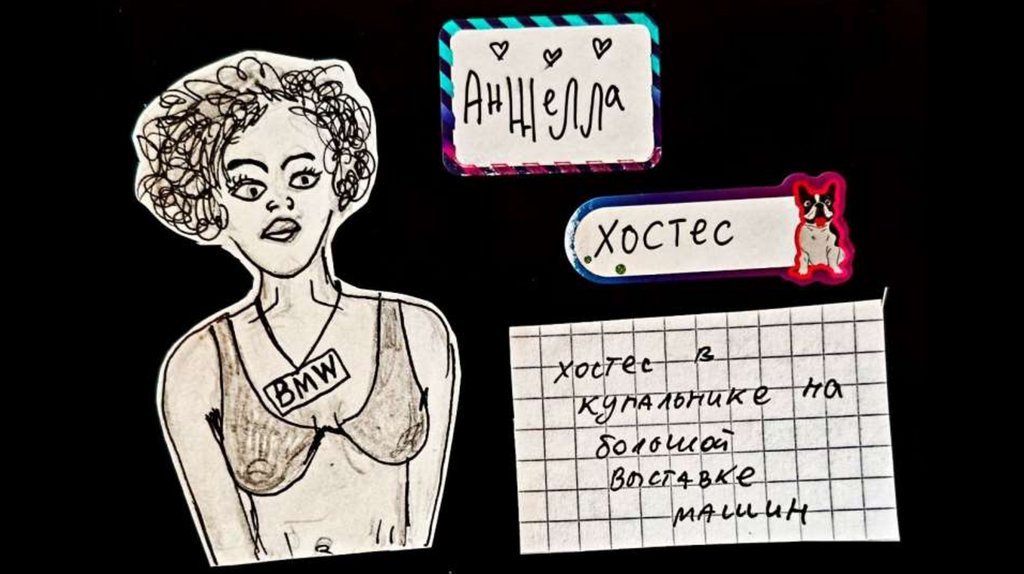 Анжелла
хостес
BMW
хостес в
купальнике на
большой
выставке
машин